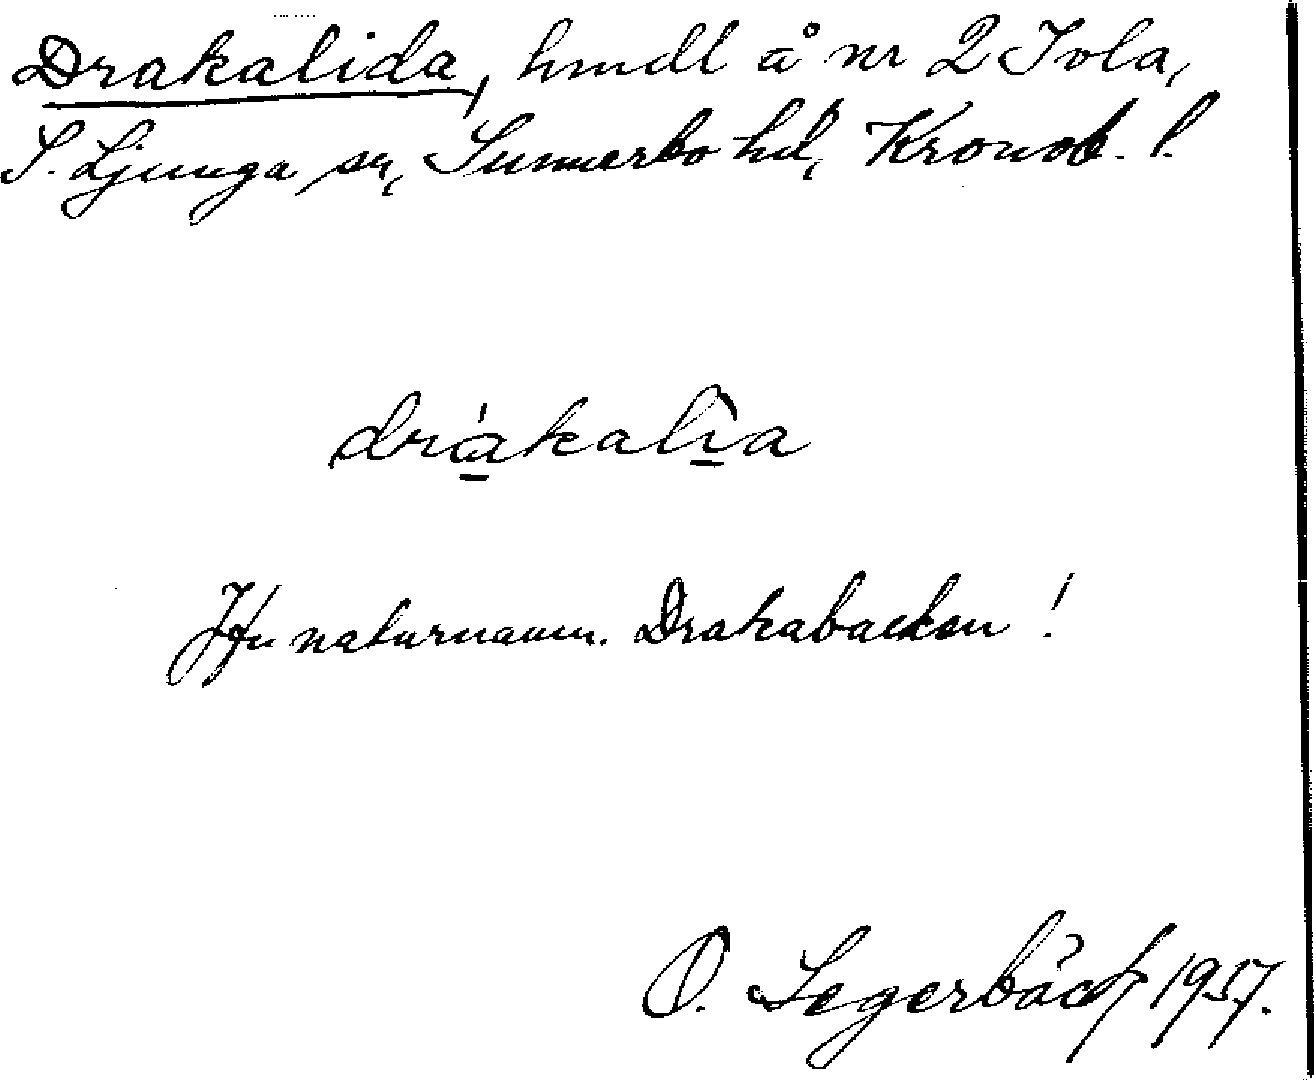 Drakalida, hmdl å nr 2 Tvla,
S. Ljunga sn, Sunnerbo hd, Kronob. l.
drákalîa
Jfr naturnamn. Drakabacken!
O. Segerbäck 1957.